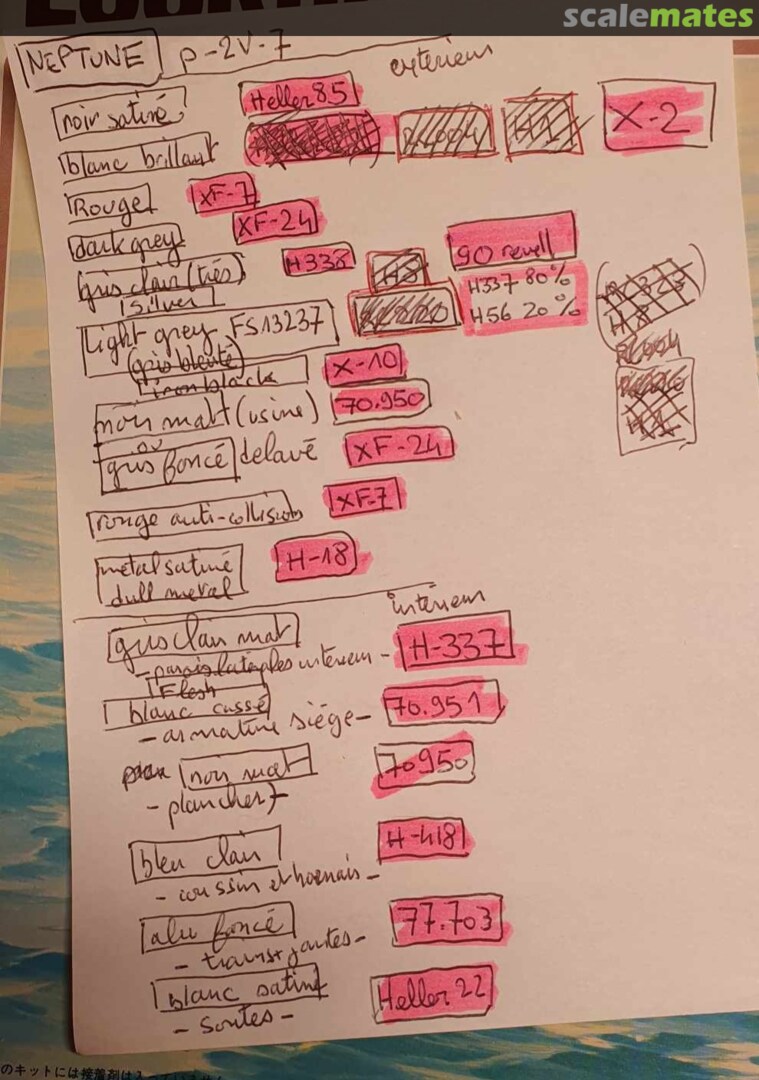 scalemates
NEPTUNE p-2V-7
extérieur
noir satiné Heller 85
blanc brillant X-2
Rouge XF-7
dark grey XF-24
gris clair (très) H338 90 revell
silver
Light grey FS13237 H337 80%
H56 20%
(gris bleuté)
iron black X-10
noir mat (usine) 70.950
ou
gris foncé délavé XF-24
rouge anti-collision XF-7
métal satiné H-18
dull metal
intérieur
gris clair mat H-337
- parois latérales intérieur -
Flesh
blanc cassé 70.951
- armature siège -
noir mat 70950
- plancher -
bleu clair H-418
- coussin et harnais -
alu foncé 77.703
- jantes -
blanc satiné Heller 22
- soutes -